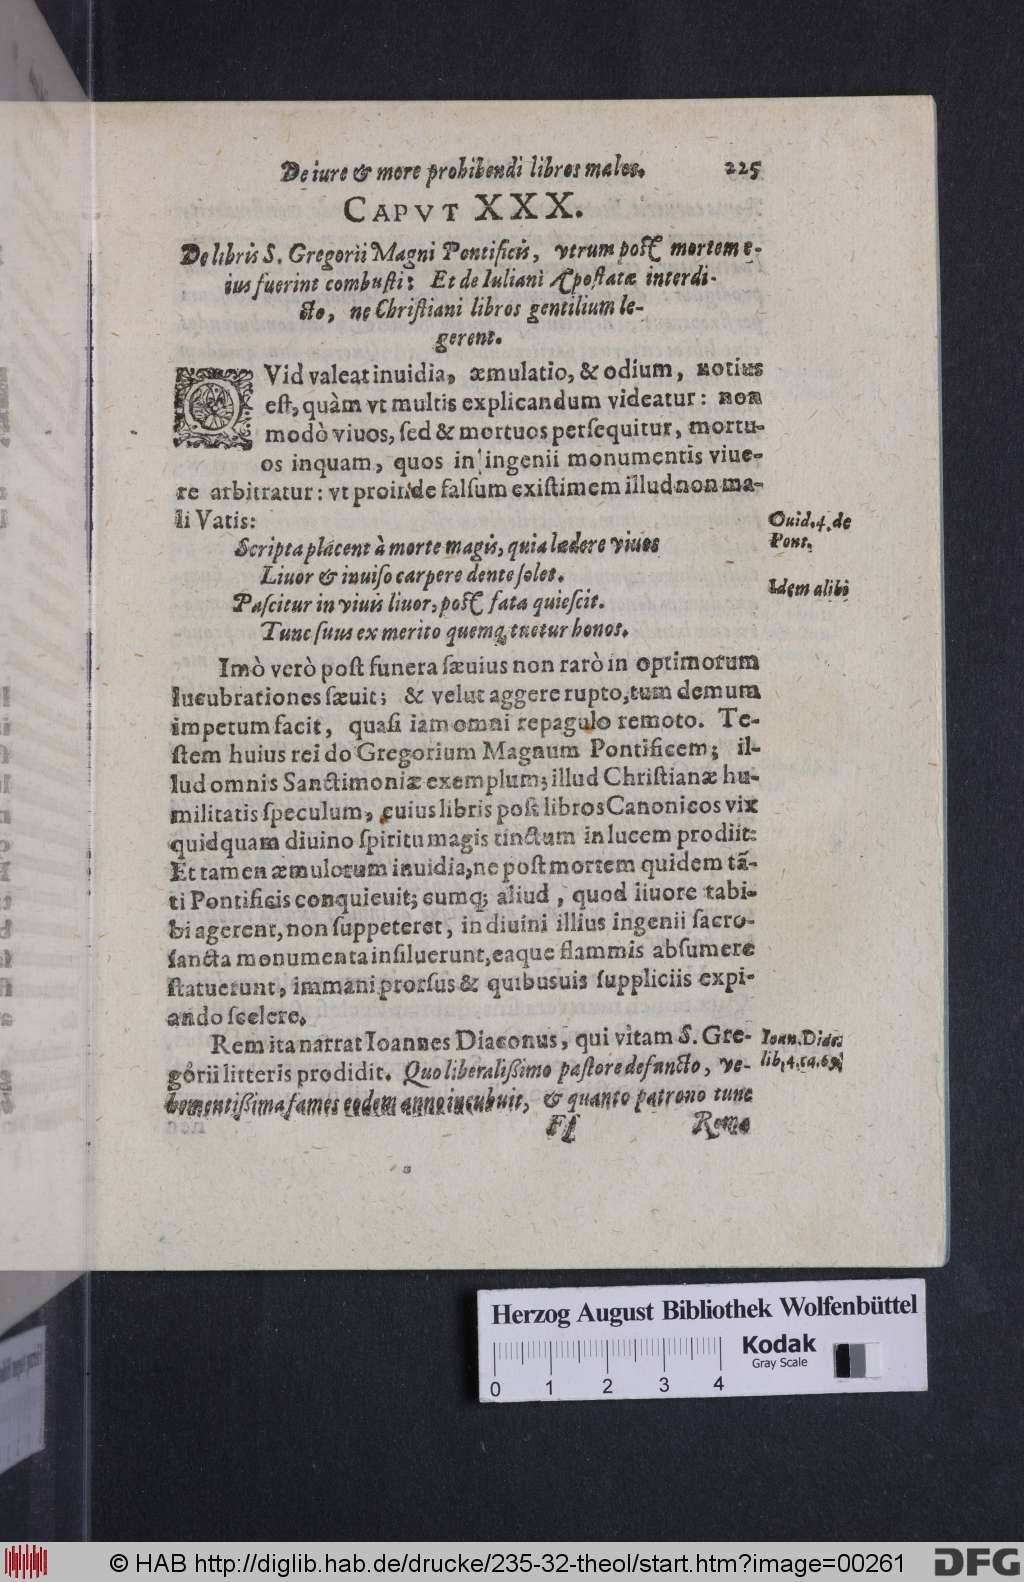 De iure & more prohibendi libros malos. 225
CAPVT XXX.
De libris S. Gregorii Magni Pontificis, vtrum post mortem e-
ius fuerint combusti: Et de Iuliani Apostatæ interdi-
cto, ne Christiani libros gentilium le-
gerent.
QVid valeat inuidia, æmulatio, & odium, notius
est, quàm vt multis explicandum videatur: non
modò viuos, sed & mortuos persequitur, mortu-
os inquam, quos in ingenii monumentis viue-
re arbitratur: vt proinde falsum existimem illud non ma-
li Vatis:
Ouid. 4. de
Pont.
Scripta placent à morte magis, quia lædere viuos
Liuor & iniuso carpere dente solet.
Idem alibi
Pascitur in viuis liuor, post fata quiescit.
Tunc suus ex merito quemq, tuetur honos.
Imò verò post funera sæuius non rarò in optimorum
lucubrationes sæuit; & velut aggere rupto, tum demum
impetum facit, quasi iam omni repagulo remoto. Te-
stem huius rei do Gregorium Magnum Pontificem; il-
lud omnis Sanctimoniæ exemplum; illud Christianæ hu-
militatis speculum, cuius libris post libros Canonicos vix
quidquam diuino spiritu magis tinctum in lucem prodiit:
Et tamen æmulorum inuidia, ne post mortem quidem tã-
ti Pontificis conquieuit; cumq; aliud, quod liuore tabi-
bi agerent, non suppeteret, in diuini illius ingenii sacro-
sancta monumenta insiluerunt, eaque flammis absumere
statuerunt, immani prorsus & quibusuis suppliciis expi-
ando scelere.
Rem ita narrat Ioannes Diaconus, qui vitam S. Gre-
gorii litteris prodidit. Quo liberalißimo pastore defuncto, ve-
hementißima fames eodem anno incubuit, & quanto patrono tunc
Ioan. Diac.
lib. 4. ca. 69.
Ff Romæ
Herzog August Bibliothek Wolfenbüttel
Kodak
Gray Scale
0 1 2 3 4
© HAB http://diglib.hab.de/drucke/235-32-theol/start.htm?image=00261
DFG